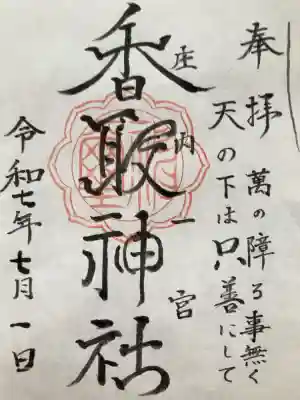 奉拝
萬の障る事無く
天の下は只善にして
庄内一宮
香取神社
令和七年七月一日